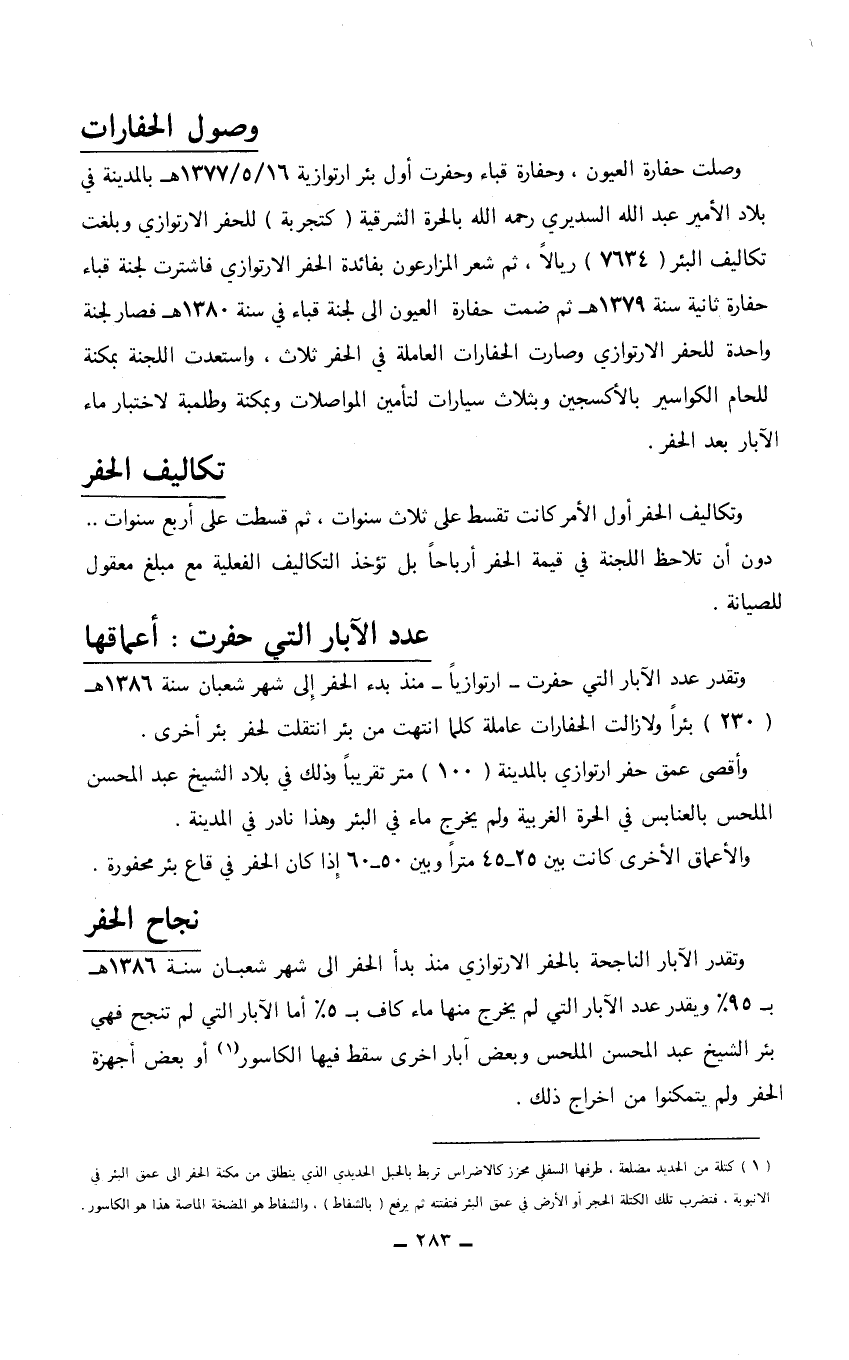 وصول الحفارات
وصلت حفارة العيون ، وحفارة قباء وحفرت أول بئر ارتوازية ١٣٧٧/٥/١٦هـ بالمدينة في
بلاد الأمير عبد الله السديري رحمه الله بالحرة الشرقية ( كتجربة ) للحفر الارتوازي وبلغت
تكاليف البئر ( ٧٦٣٤ ) ريالاً ، ثم شعر المزارعون بفائدة الحفر الارتوازي فاشترت لجنة قباء
حفارة ثانية سنة ١٣٧٩هـ ثم ضمت حفارة العيون الى لجنة قباء في سنة ١٣٨٠هـ فصار لجنة
واحدة للحفر الارتوازي وصارت الحفارات العاملة في الحفر ثلاث ، واستعدت اللجنة بمكنة
للحام الكواسير بالأكسجين وبثلاث سيارات لتأمين المواصلات وبمكنة وطلمبة لاختبار ماء
الآبار بعد الحفر .
تكاليف الحفر
وتكاليف الحفر أول الأمر كانت تقسط على ثلاث سنوات ، ثم قسطت على أربع سنوات ..
دون أن تلاحظ اللجنة في قيمة الحفر أرباحاً بل تؤخذ التكاليف الفعلية مع مبلغ معقول
للصيانة .
عدد الآبار التي حفرت : أعماقها
وتقدر عدد الآبار التي حفرت ـ ارتوازياً ـ منذ بدء الحفر إلى شهر شعبان سنة ١٣٨٦هـ
( ٢٣٠ ) بئراً ولازالت الحفارات عاملة كلما انتهت من بئر انتقلت لحفر بئر أخرى .
وأقصى عمق حفر ارتوازي بالمدينة ( ١٠٠ ) متر تقريباً وذلك في بلاد الشيخ عبد المحسن
الملحس بالعنابس في الحرة الغربية ولم يخرج ماء في البئر وهذا نادر في المدينة .
والأعماق الأخرى كانت بين ٢٥ـ٤٥ متراً وبين ٥٠ـ٦٠ إذا كان الحفر في قاع بئر محفورة .
نجاح الحفر
وتقدر الآبار الناجحة بالحفر الارتوازي منذ بدأ الحفر الى شهر شعبان سنة ١٣٨٦هـ
بـ ٩٥٪ ويقدر عدد الآبار التي لم يخرج منها ماء كاف بـ ٥٪ أما الآبار التي لم تنجح فهي
بئر الشيخ عبد المحسن الملحس وبعض آبار اخرى سقط فيها الكاسور(١) أو بعض أجهزة
الحفر ولم يتمكنوا من اخراج ذلك .
( ١ ) كتلة من الحديد مضلعة ، طرفها السفلي محزز كالاضراس تربط بالحبل الحديدي الذي ينطلق من مكنة الحفر الى عمق البئر في
الانبوبة ، فتضرب تلك الكتلة الحجر أو الأرض في عمق البئر فتفتته ثم يرفع ( بالشفاط ) ، والشفاط هو المضخة الماصة هذا هو الكاسور .
ـ ٢٨٣ ـ